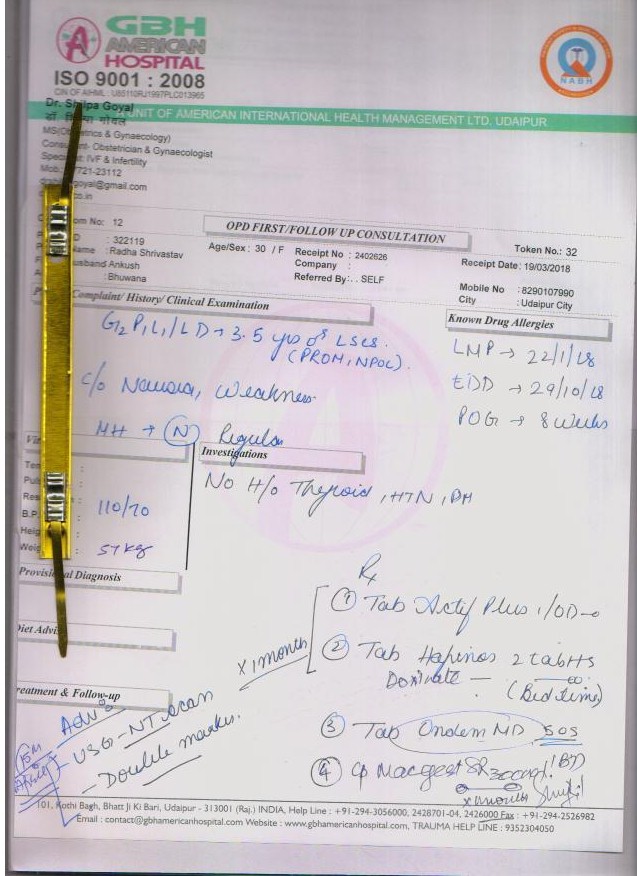 GBH
AMERICAN
HOSPITAL
ISO 9001 : 2008
CIN OF AIHML : U85110RJ1997PLC013965
NABH
UNIT OF AMERICAN INTERNATIONAL HEALTH MANAGEMENT LTD. UDAIPUR
Dr. Shilpa Goyal
गोयल
MS(Obstetrics & Gynaecology)
Consultant- Obstetrician & Gynaecologist
IVF & Infertility
Mob. 7721-23112
goyal@gmail.com
co.in
om No: 12
OPD FIRST/FOLLOW UP CONSULTATION
Token No.: 32
: 322119
Name : Radha Shrivastav
Age/Sex : 30 / F
Receipt No : 2402626
Receipt Date: 19/03/2018
usband Ankush
Company :
: Bhuwana
Referred By: . . SELF
Mobile No : 8290107990
City : Udaipur City
Complaint/ History/ Clinical Examination
Known Drug Allergies
G2 P1 L1 / LD → 3.5 yrs of LSCS.
(PROM, NPOL).
LMP → 22/1/18
EDD → 29/10/18
POG → 8 weeks
c/o Nausea, Weakness
MH → (N) Regular
Investigations
No H/o Thyroid, HTN, DM
B.P. : 110/70
Weig : 57 kg
Provisional Diagnosis
Diet Advi
Rx
① Tab Actif Plus 1/OD
② Tab Hapinos 2 tab HS
Doxinate — (Bed time)
x 1 month
reatment & Follow-up
Adv
- USG - NT scan
- Double marker.
③ Tab Ondem MD SOS
④ Cp Macgest SR 300mg (BD)
x 1 month
101, Kothi Bagh, Bhatt Ji Ki Bari, Udaipur - 313001 (Raj.) INDIA, Help Line : +91-294-3056000, 2428701-04, 2426000 Fax : +91-294-2526982
Email : contact@gbhamericanhospital.com Website : www.gbhamericanhospital.com, TRAUMA HELP LINE : 9352304050